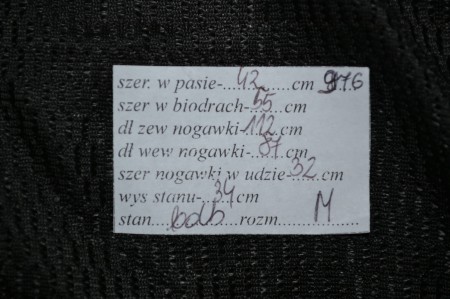 szer. w pasie-....42......cm 976
szer w biodrach-55....cm
dł zew nogawki-112.cm
dł wew nogawki-.87.cm
szer nogawki w udzie-32..cm
wys stanu-..34cm
stan....bdb....rozm......M..........